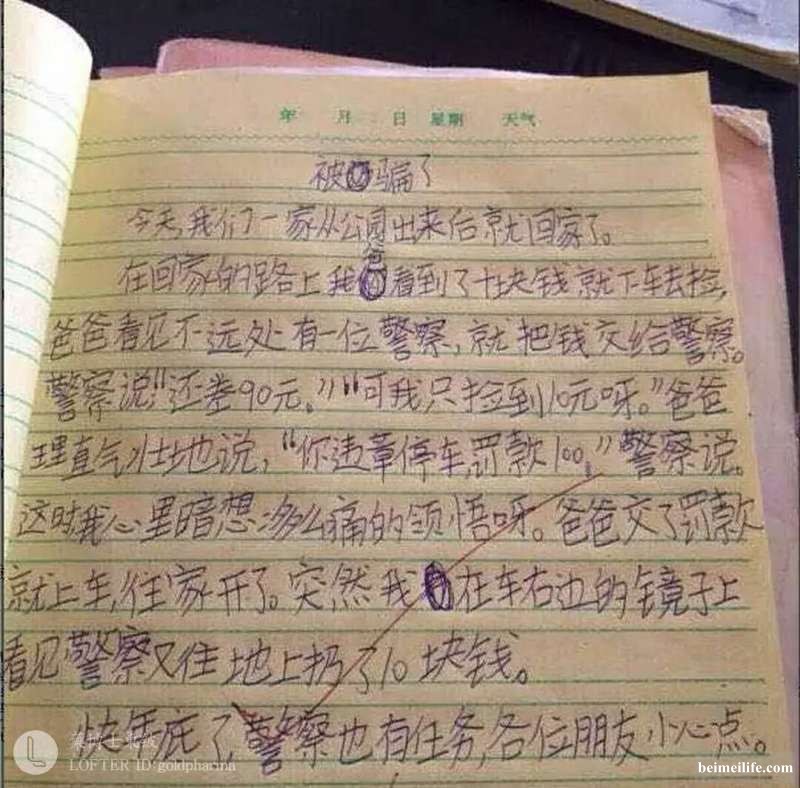 年 月 日 星期 天气
被骗了
今天,我们一家从公园出来后就回家了。
在回家的路上我爸看到了十块钱就下车去捡,
爸爸看见不远处有一位警察,就把钱交给警察。
警察说“还差90元。”“可我只捡到10元呀。”爸爸
理直气壮地说,“你违章停车,罚款100。”警察说。
这时我心里暗想:多么痛的领悟呀。爸爸交了罚款
就上车,往家开了。突然我在车右边的镜子上
看见警察又往地上扔了10块钱。
快年底了,警察也有任务,各位朋友小心点。
LOFTER ID:goldpharina
beimeilife.com